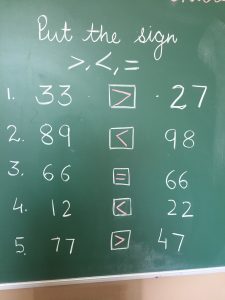 Put the sign
>, <, =
1. 33 > 27
2. 89 < 98
3. 66 = 66
4. 12 < 22
5. 77 > 47